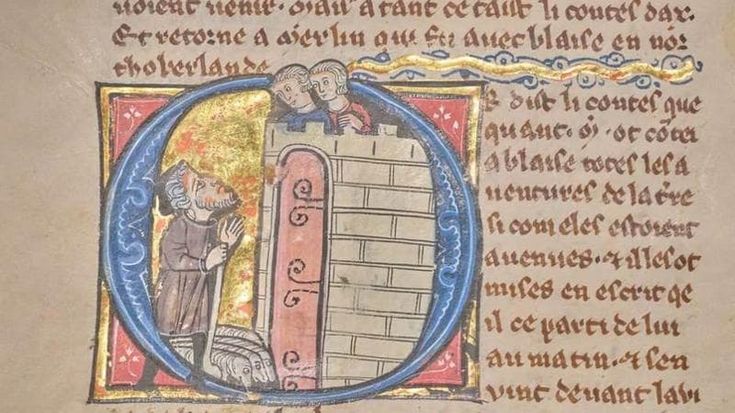 uoient uenir. Mais a tant ce taist li contes dar.
Et retorne a Merlin qui est auec blaise en nor
thoberlande
OR dist li contes que
quant. M. ot cõtei
a blaise totes les a
uentures de la tre
si com eles estoient
auenues. & il les ot
mises en escrit qe
il ce parti de lui
au matin. & sen
uint deuant la ui